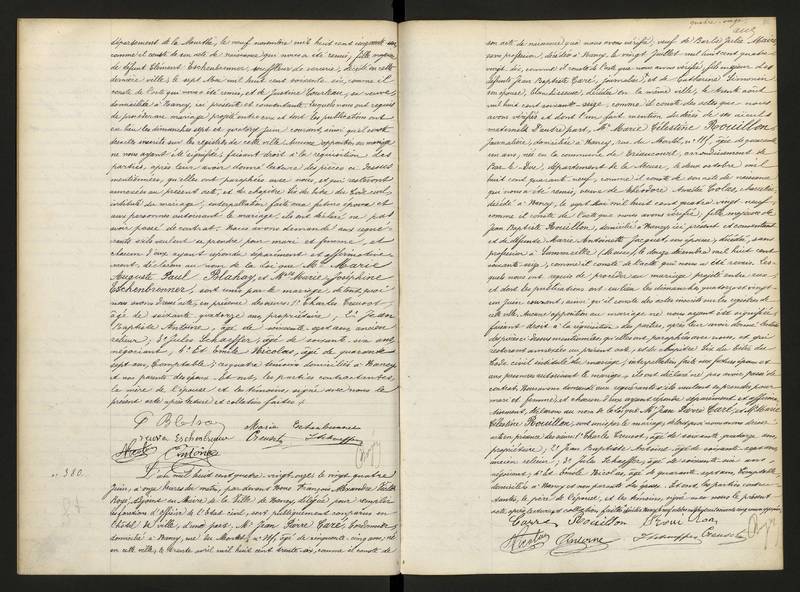 département de la Meurthe, le neuf novembre mil huit cent cinquante
comme il conste de son acte de naissance qui nous a été remis, fille majeure
de défunt Clément Eschenbrenner, souffleur de verre, décédé en cette
dernière ville, le sept Mai mil huit cent soixante six, comme il
conste de l'acte qui nous a été remis, et de Justine Courteau, sa veuve,
domiciliée à Nancy, ici présente et consentante. Lesquels nous ont requis
de procéder au mariage projeté entre eux et dont les publications ont
eu lieu les dimanches sept et quatorze juin courant, ainsi qu'il conste
des actes inscrits sur les registres de cette ville. Aucune opposition au mariage
ne nous ayant été signifiée, faisant droit à la réquisition des
parties, après leur avoir donné lecture des pièces ci dessus
mentionnées, qu'elles ont paraphées avec nous, et qui resteront
annexées au présent acte, et du chapitre six du titre du Code civil
intitulé du mariage, interpellation faite aux futurs époux et
aux personnes autorisant le mariage, ils ont déclaré ne pas
avoir passé de contrat. Nous avons demandé aux requé-
rants s'ils veulent se prendre pour mari et femme, et
chacun d'eux ayant répondu séparément et affirmative
ment, déclarons au nom de la loi que Mr Marie
Auguste Paul Blahay et Melle Marie Joséphine
Eschenbrenner, sont unis par le mariage, et dont, pro-
nous avons dressé acte, en présence des sieurs: 1° Charles Creusot
âgé de soixante quatorze ans, propriétaire; 2° Jean
Baptiste Antoine, âgé de soixante sept ans ancien
relieur; 3° Jules Schaeffer, âgé de soixante six ans
négociant, 4° et Emile Nicolas, âgé de quarante
sept ans, Comptable; ces quatre témoins domiciliés à Nancy
et non parents des époux. Et ont, les parties contractantes,
la mère de l'épouse et les témoins, signé avec nous le
présent acte après lecture et collation faites.
P Blahay
Maria Eschenbrenner
veuve Eschenbrenner
Creusot
J Schaeffer
Nicolas
Antoine
n° 380.
L'an mil huit cent quatre-vingt onze le vingt quatre
juin, à onze heures du matin, par devant Nous François Alexandre
adjoint au Maire de la Ville de Nancy, délégué pour remplir
les fonctions d'officier de l'état civil, sont publiquement comparus en
l'hôtel de ville, d'une part, Mr Jean Pierre Carré, Cordonnier,
domicilié à Nancy, rue du Montet, n° 115, âgé de cinquante-cinq ans, né
en cette ville, le trente avril mil huit cent trente-six, comme il conste de
quatre-vingt
son acte de naissance que nous avons vérifié; veuf de Barbe Julie Marie,
sans profession, décédée à Nancy, le vingt Juillet mil huit cent quatre
vingt dix, comme il conste de l'acte que nous avons vérifié; fils majeur des
défunts Jean Baptiste Carré, journalier, et de Catherine Simonin
son épouse, blanchisseuse, décédée en la même ville, le trente août
mil huit cent soixante-seize, comme il conste des actes que nous
avons vérifiés et dont l'un fait mention du décès de ses aïeuls
maternels. D'autre part, Me Marie Célestine Rouillon,
Journalière, domiciliée à Nancy, rue du Montet, n° 115, âgée de quarante
un ans, née en la commune de Brieucourt, arrondissement de
Bar le Duc, département de la Meuse, le deux octobre mil
huit cent quarante neuf, comme il conste de son acte de naissance
qui nous a été remis, veuve de Théodore Amédée Colas, charretier,
décédé à Nancy, le sept Mai mil huit cent quatre vingt neuf,
comme il conste de l'acte que nous avons vérifié, fille majeure de
Jean Baptiste Rouillon, domicilié à Nancy, ici présent et consentant
et de défunte Marie Antoinette Jacquet, son épouse, décédée, sans
profession, à (Meuse), le vingt décembre mil huit cent
soixante-seize, comme il conste de l'acte qui nous a été remis. Les-
quels nous ont requis de procéder au mariage projeté entre eux
et dont les publications ont eu lieu les dimanches quatorze et vingt
un Juin courant, ainsi qu'il conste des actes inscrits sur les registres de
cette ville. Aucune opposition au mariage ne nous ayant été signifiée,
faisant droit à la réquisition des parties, après leur avoir donné lecture
des pièces ci dessus mentionnées, qu'elles ont paraphées avec nous, et qui
resteront annexées au présent acte, et du chapitre six du titre du
Code civil intitulé du mariage, interpellation faite aux futurs époux et
aux personnes autorisant le mariage, ils ont déclaré ne pas avoir passé de
contrat. Nous avons demandé aux requérants s'ils veulent se prendre pour
mari et femme, et chacun d'eux ayant répondu séparément et affirma-
tivement, déclarons au nom de la loi que Mr Jean Pierre Carré, et Me Marie
Célestine Rouillon, sont unis par le mariage, et de ce que nous avons dressé
acte en présence des sieurs: 1° Charles Creusot, âgé de soixante quatorze ans,
propriétaire; 2° Jean Baptiste Antoine, âgé de soixante-sept ans,
ancien relieur; 3° Jules Schaeffer, âgé de soixante six ans
négociant, 4° et Emile Nicolas, âgé de quarante sept ans, Comptable
domiciliés à Nancy et non parents des époux. Et ont, les parties contrac-
tantes, le père de l'épouse, et les témoins, signé avec nous le présent
acte, après lecture et collation faites.
Carré Rouillon
Nicolas
Antoine
J Schaeffer
Creusot